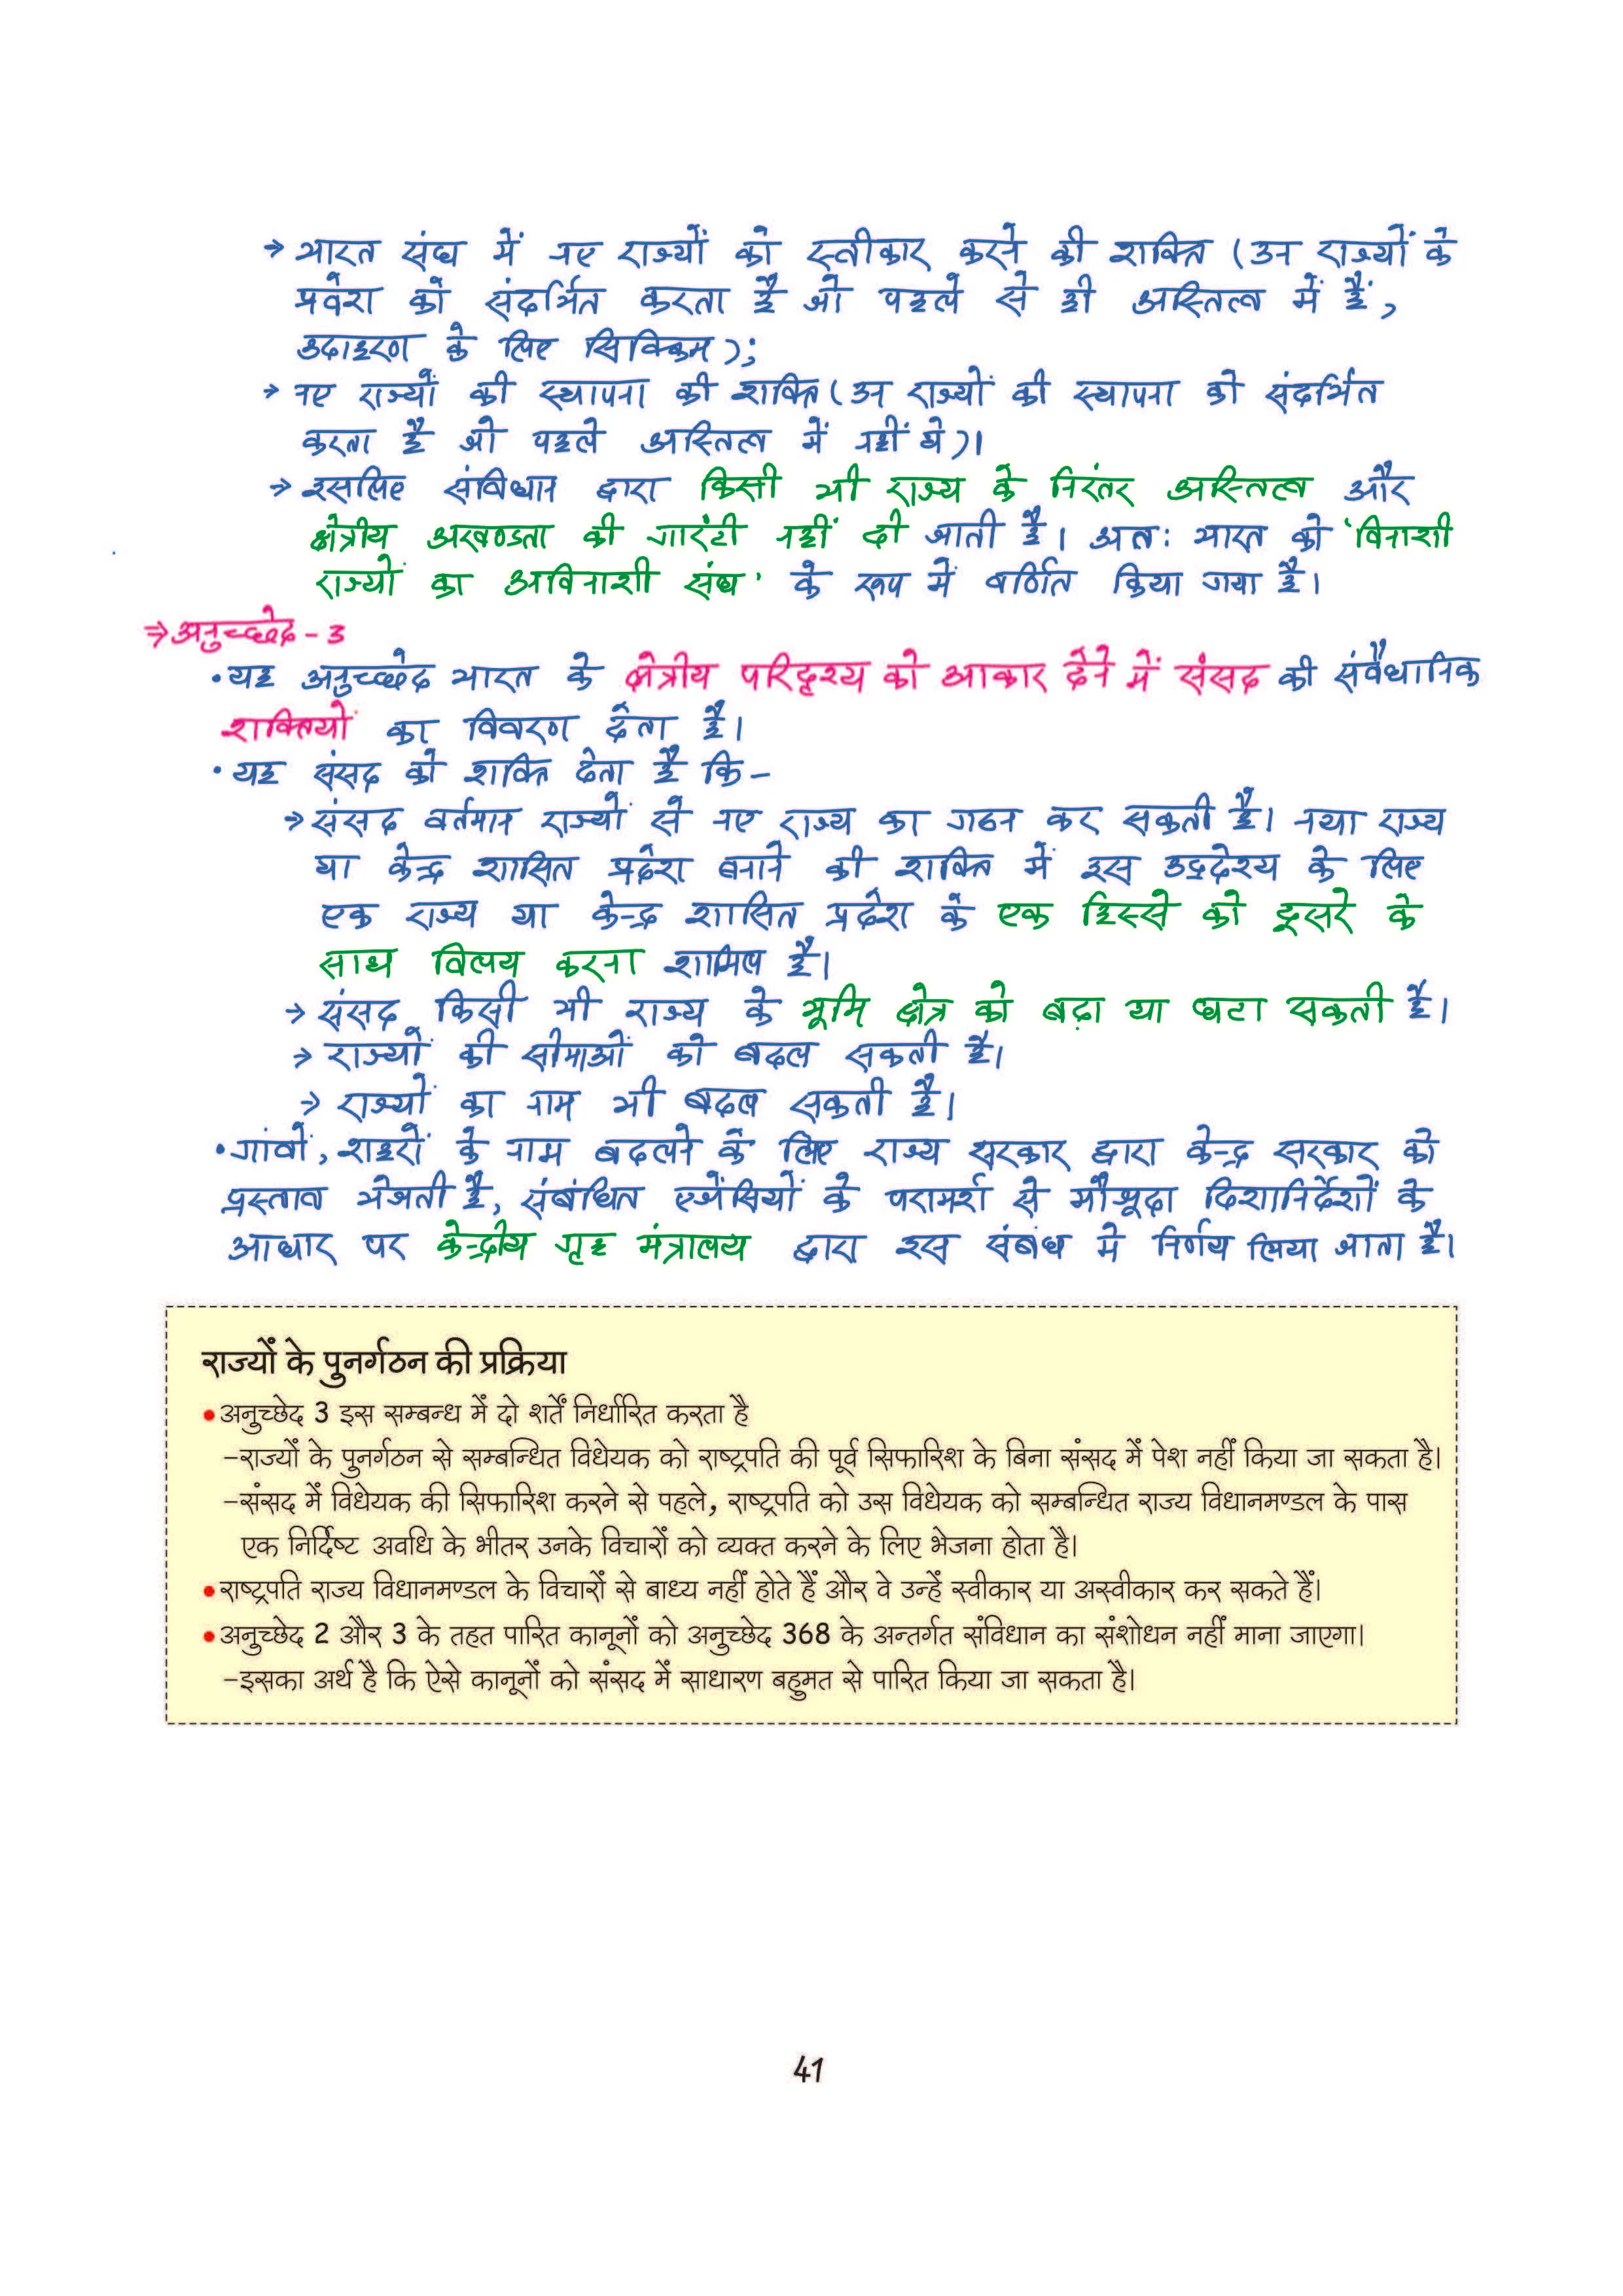 → भारत संघ में नए राज्यों को स्वीकार करने की शक्ति (उन राज्यों के
प्रवेश को संदर्भित करता है जो पहले से ही अस्तित्व में हैं,
उदाहरण के लिए सिक्किम);
→ नए राज्यों की स्थापना की शक्ति (उन राज्यों की स्थापना को संदर्भित
करता है जो पहले अस्तित्व में नहीं थे)।
→ इसलिए संविधान द्वारा किसी भी राज्य के निरंतर अस्तित्व और
क्षेत्रीय अखण्डता की गारंटी नहीं दी जाती है। अतः भारत को 'विनाशी
राज्यों का अविनाशी संघ' के रूप में वर्णित किया गया है।
⇒ अनुच्छेद - 3
• यह अनुच्छेद भारत के क्षेत्रीय परिदृश्य को आकार देने में संसद की संवैधानिक
शक्तियों का विवरण देता है।
• यह संसद को शक्ति देता है कि -
→ संसद वर्तमान राज्यों से नए राज्य का गठन कर सकती है। नया राज्य
या केन्द्र शासित प्रदेश बनाने की शक्ति में इस उद्देश्य के लिए
एक राज्य या केन्द्र शासित प्रदेश के एक हिस्से को दूसरे के
साथ विलय करना शामिल है।
→ संसद किसी भी राज्य के भूमि क्षेत्र को बढ़ा या घटा सकती है।
→ राज्यों की सीमाओं को बदल सकती है।
→ राज्यों का नाम भी बदल सकती है।
• गांवों, शहरों के नाम बदलने के लिए राज्य सरकार द्वारा केन्द्र सरकार को
प्रस्ताव भेजती है, संबंधित एजेंसियों के परामर्श से मौजूदा दिशानिर्देशों के
आधार पर केन्द्रीय गृह मंत्रालय द्वारा इस संबंध में निर्णय लिया जाता है।
राज्यों के पुनर्गठन की प्रक्रिया
• अनुच्छेद 3 इस सम्बन्ध में दो शर्तें निर्धारित करता है
–राज्यों के पुनर्गठन से सम्बन्धित विधेयक को राष्ट्रपति की पूर्व सिफारिश के बिना संसद में पेश नहीं किया जा सकता है।
–संसद में विधेयक की सिफारिश करने से पहले, राष्ट्रपति को उस विधेयक को सम्बन्धित राज्य विधानमण्डल के पास
एक निर्दिष्ट अवधि के भीतर उनके विचारों को व्यक्त करने के लिए भेजना होता है।
• राष्ट्रपति राज्य विधानमण्डल के विचारों से बाध्य नहीं होते हैं और वे उन्हें स्वीकार या अस्वीकार कर सकते हैं।
• अनुच्छेद 2 और 3 के तहत पारित कानूनों को अनुच्छेद 368 के अन्तर्गत संविधान का संशोधन नहीं माना जाएगा।
–इसका अर्थ है कि ऐसे कानूनों को संसद में साधारण बहुमत से पारित किया जा सकता है।
41